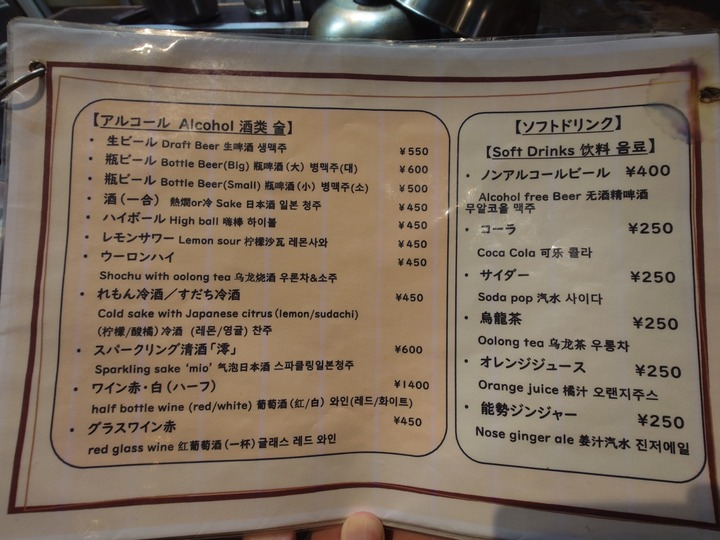 【アルコール Alcohol 酒类 술】
・ 生ビール Draft Beer 生啤酒 생맥주 ¥550
・ 瓶ビール Bottle Beer(Big) 瓶啤酒(大) 병맥주(대) ¥600
・ 瓶ビール Bottle Beer(Small) 瓶啤酒(小) 병맥주(소) ¥500
・ 酒(一合) 熱燗or冷 Sake 日本酒 일본 청주 ¥450
・ ハイボール High ball 嗨棒 하이볼 ¥450
・ レモンサワー Lemon sour 柠檬沙瓦 레몬사와 ¥450
・ ウーロンハイ ¥450
Shochu with oolong tea 乌龙烧酒 우론차&소주
・ れもん冷酒／すだち冷酒 ¥450
Cold sake with Japanese citrus(lemon/sudachi)
(柠檬/酸橘)冷酒 (레몬/영귤) 찬주
・ スパークリング清酒「澪」 ¥600
Sparkling sake 'mio' 气泡日本酒 스파클링일본청주
・ ワイン赤・白(ハーフ) ¥1400
half bottle wine (red/white) 葡萄酒(红/白) 와인(레드/화이트)
・ グラスワイン赤 ¥450
red glass wine 红葡萄酒(一杯)글래스 레드 와인
【ソフトドリンク】
【Soft Drinks 饮料 음료】
・ ノンアルコールビール ¥400
Alcohol free Beer 无酒精啤酒
무알코올 맥주
・ コーラ ¥250
Coca Cola 可乐 콜라
・ サイダー ¥250
Soda pop 汽水 사이다
・ 烏龍茶 ¥250
Oolong tea 乌龙茶 우롱차
・ オレンジジュース ¥250
Orange juice 橘汁 오랜지주스
・ 能勢ジンジャー ¥250
Nose ginger ale 姜汁汽水 진저에일